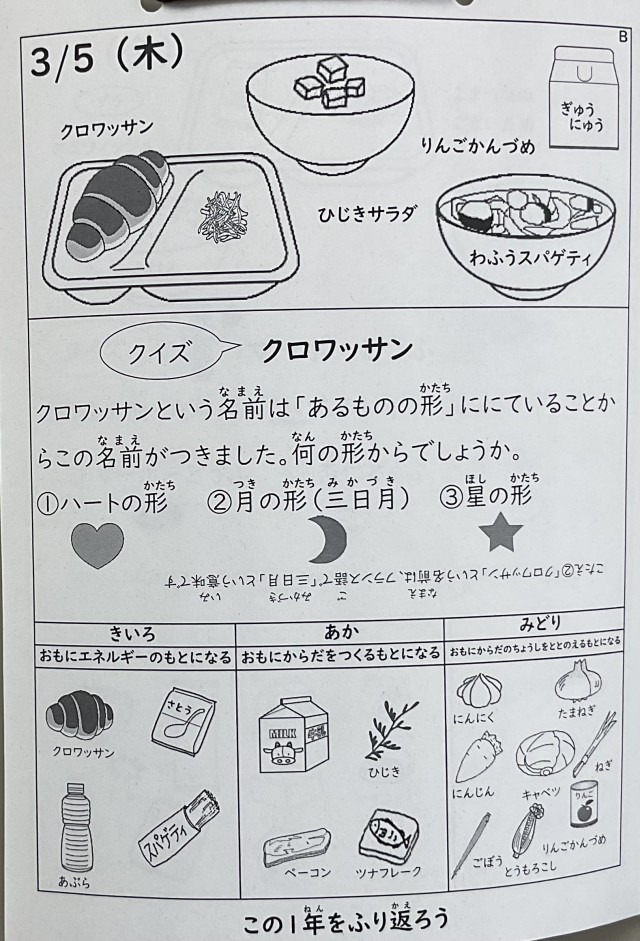 B
3/5（木）
クロワッサン
りんごかんづめ
ぎゅう
にゅう
ひじきサラダ
わふうスパゲティ
クイズ
クロワッサン
クロワッサンという名前は「あるものの形」ににていることか
らこの名前がつきました。何の形からでしょうか。
①ハートの形 ②月の形（三日月） ③星の形
こたえ②「クロワッサン」という名前は、フランス語で「三日月」という意味です
きいろ
おもにエネルギーのもとになる
クロワッサン
さとう
あぶら
スパゲティ
あか
おもにからだをつくるもとになる
MILK
ひじき
ベーコン
ツナフレーク
みどり
おもにからだのちょうしをととのえるもとになる
にんにく
たまねぎ
にんじん
キャベツ
ねぎ
ごぼう
とうもろこし
りんご
りんごかんづめ
この1年をふり返ろう